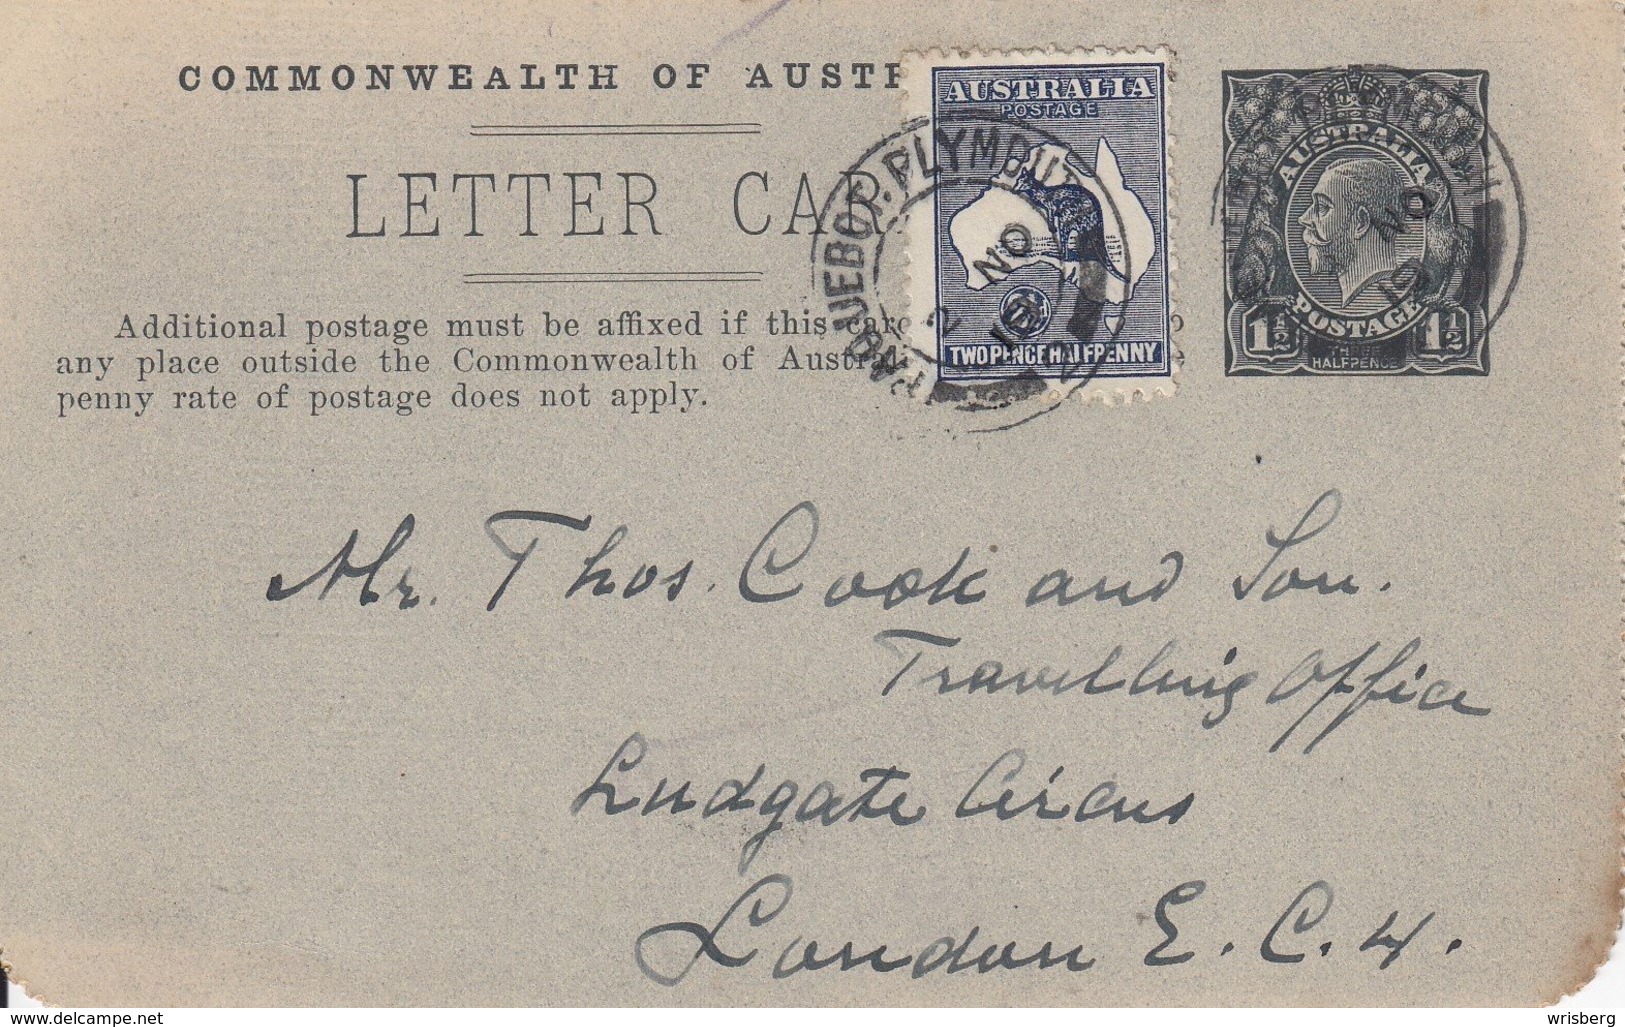 COMMONWEALTH OF AUSTR
LETTER CAR
Additional postage must be affixed if this card
any place outside the Commonwealth of Austral
penny rate of postage does not apply.
AUSTRALIA
POSTAGE
TWO PENCE HALFPENNY
PAQUEBOT. PLYMOU
NO
AUSTRALIA
POSTAGE
1½ 1½
HALFPENCE
NO
19
Mr. Thos. Cook and Son.
Travelling Office
Ludgate Circus
London E. C. 4.
www.delcampe.net
wrisberg